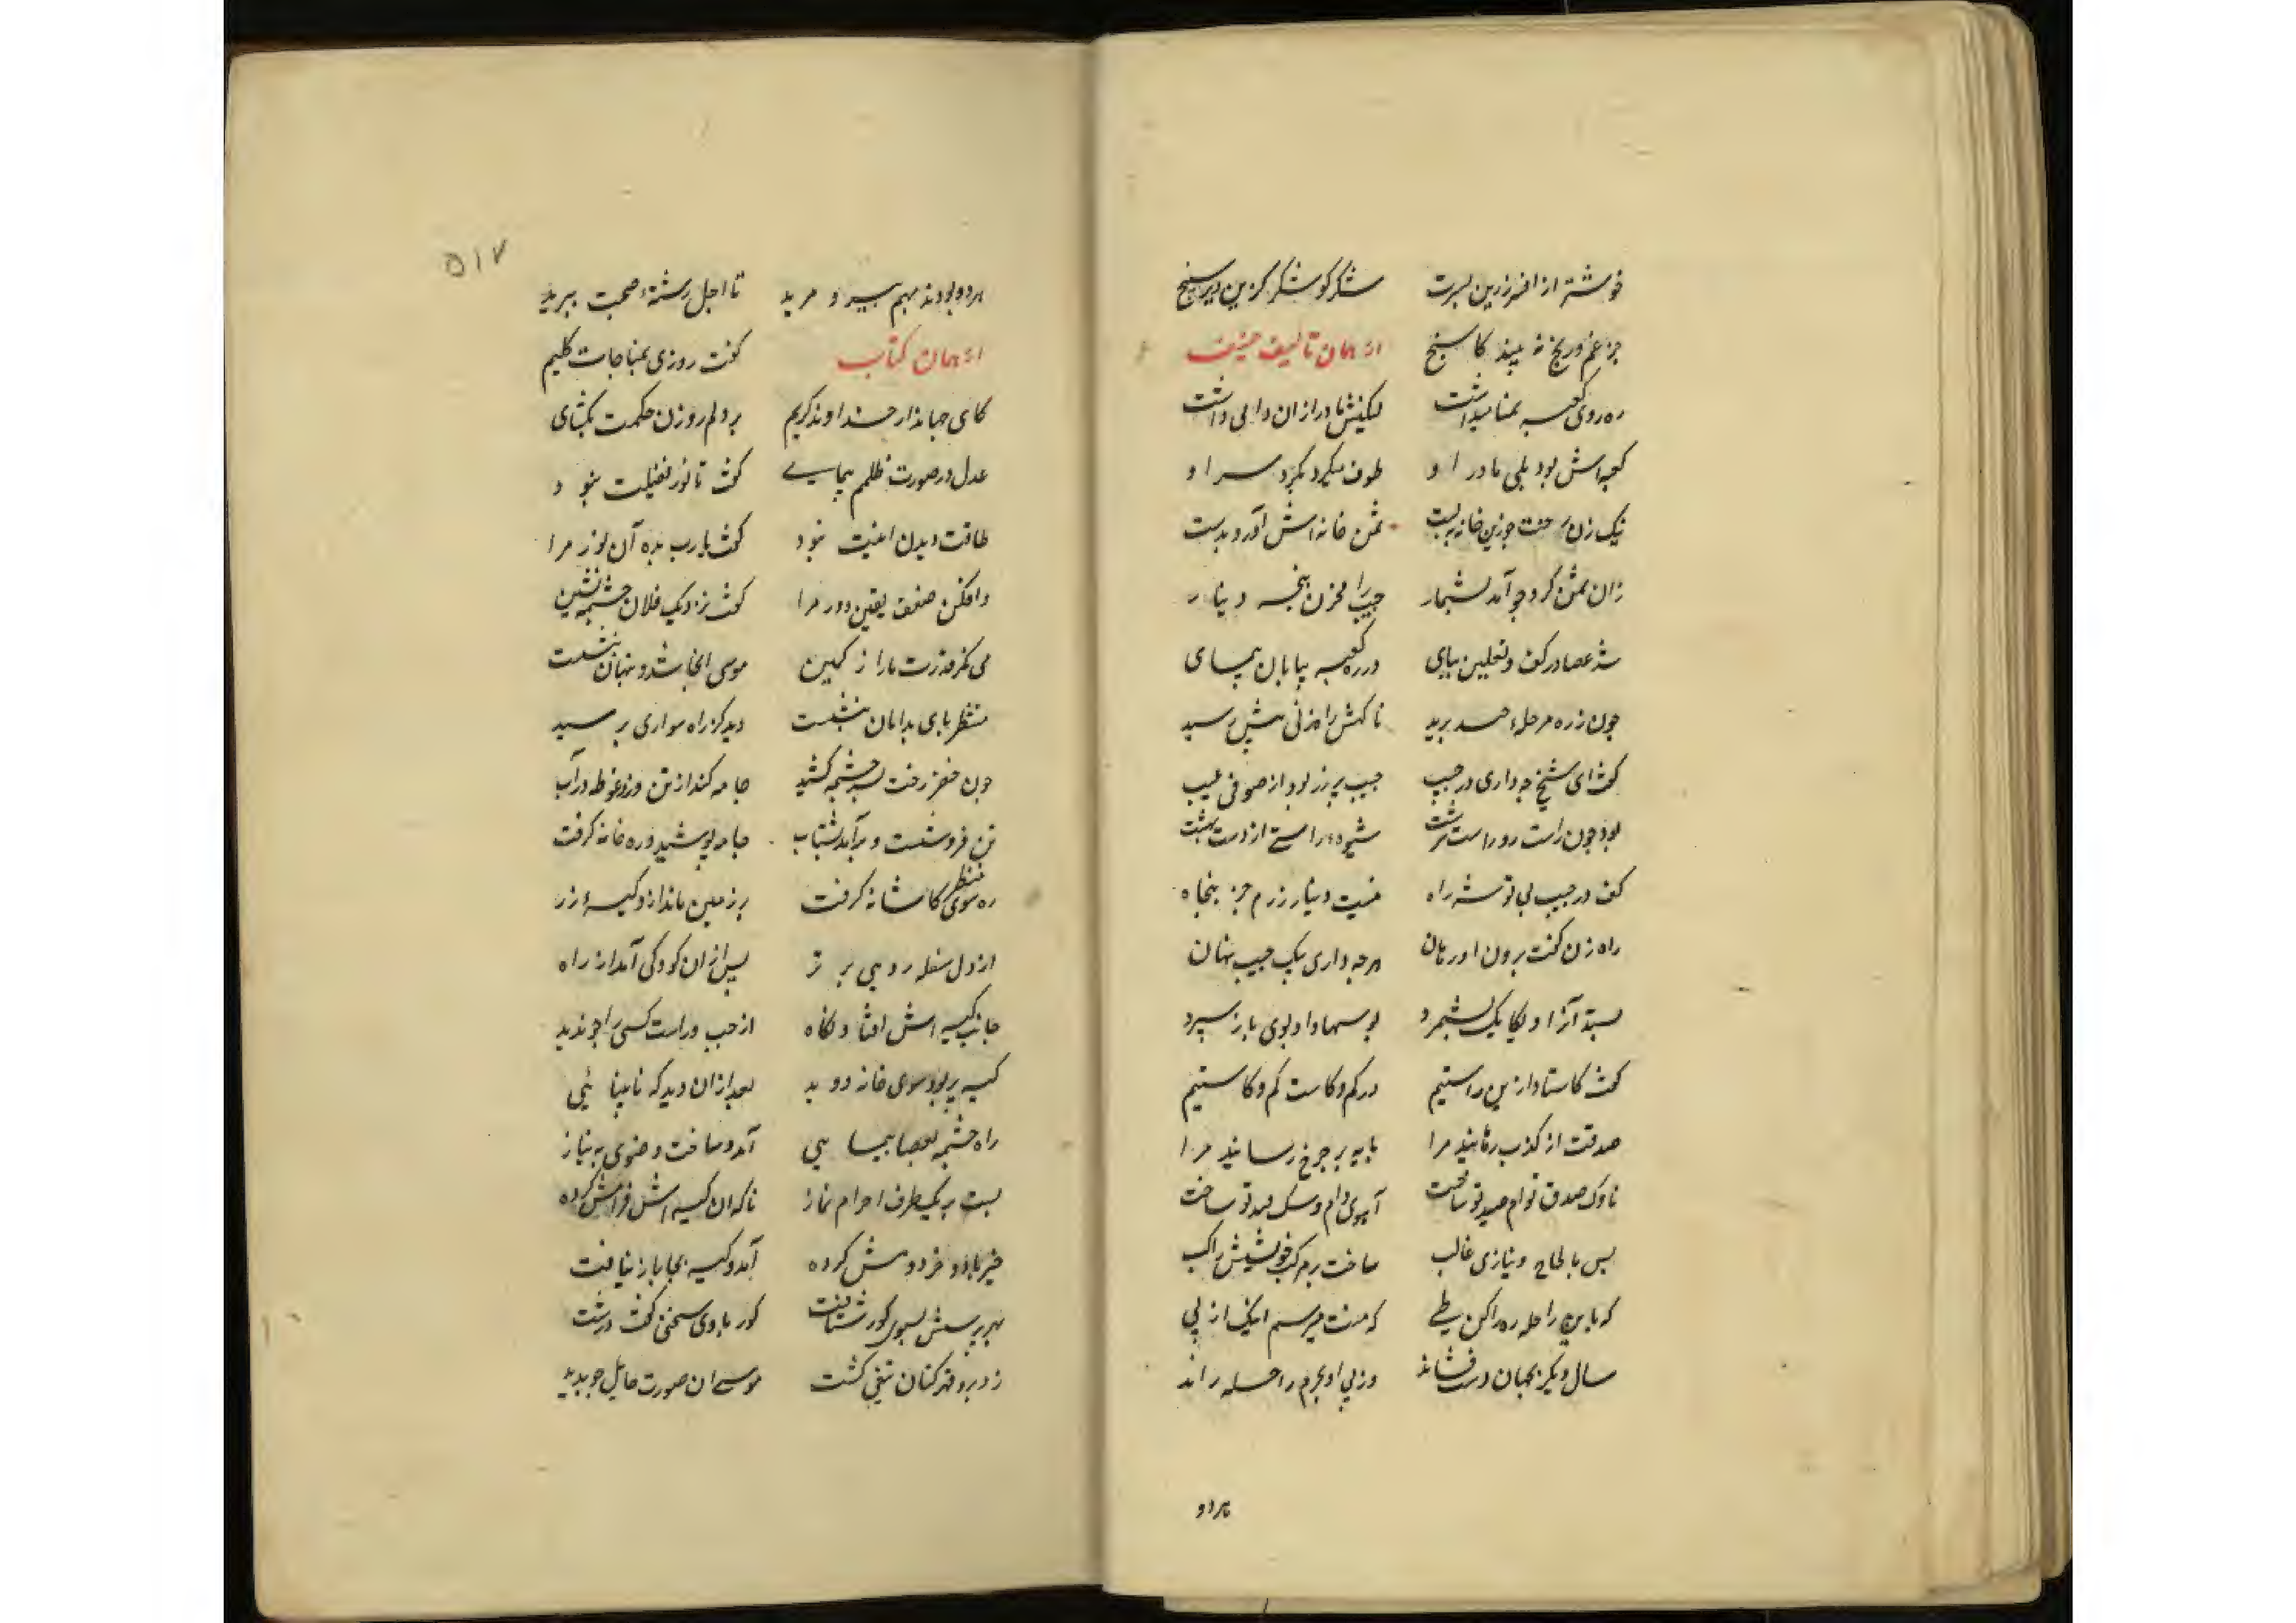 خوشتر از افسر زرین بسرت شکر کو شکر کزین دیر سپنج
جز غم و رنج نه بیند کاسنج از همان تالیف حنیف
ره روی کعبه تمنا میداشت لیکنش مادر ازان وا می داشت
کعبه اش بود بلی مادر او طوف میکرد بگرد سر او
نیک زن رخت چو زین خانه ببست ثمن خانه اش آورد بدست
زان ثمن کرد چو آمد بشمار جیب را مخزن پنجه دینار
شد عصا در کف و نعلین بپای در ره کعبه بیابان پیمای
چون ز ره مرحلهٔ چند برید ناگهش راهزنی پیش رسید
گفت ای شیخ چه داری در جیب جیب پر زر بود از صوفی عیب
بود چون راست رو و راست سرشت شیوهٔ راستی از دست نهشت
کف در جیب پی توشه راه نیست دینار زرم جز پنجاه
راه زن گفت برون آور هان هر چه داری بیک جیب نهان
بستد آنرا و یکایک بشمرد بوسها داد و بوی باز سپرد
گفت کاستاد ازین راستیم در کم و کاست کم و کاستیم
صدقت از کذب رهانید مرا پایه بر چرخ رسانید مرا
ناوک صدق توام صید تو ساخت آهوی دام و سگ قید تو ساخت
پس بالحاح و نیازی غالب ساخت بر مرکب خویشش راکب
که باین راحله ره را کن طی که منت میرسم اینک از پی
سال دیگر بجهان دست فشاند وز پی او بحرم راحله راند
هر دو
هر دو بودند بهم پیر و مرید تا اجل رشتهٔ صحبت ببرید
از همان کتاب گفت روزی بمناجات کلیم
کای جهاندار خداوند کریم بر دلم روزن حکمت بگشای
عدل در صورت ظلمم بنمای گفت تا نور نفیلت نبود
طاقت دیدن اینت نبود گفت یا رب بده آن نور مرا
وا مکن ضعف یقین دور مرا گفت نزدیک فلان چشمه نشین
می نگر قدرت ما را ز کمین موسی آنجا شد و پنهان بنشست
منتظر پای بدامان بنشست دید کز راه سواری برسید
چون خضر رخت بسر چشمه کشید جامه کند از تن و زد غوطه در آب
تن فرو شست و برآمد بشتاب جامه پوشید و ره خانه گرفت
ره سوی منظر کاشانه گرفت بر زمین ماند ازو کیسهٔ زر
از دل سفله روبی پر تر پس ازان کودکی آمد از راه
جانب کیسه اش افتاد نگاه از چپ و راست کسی را چو ندید
کیسه بربود سوی خانه دوید بعد ازان دید که نابینائی
راه چشمه بعصا پیمایی آمد و ساخت وضوی به نیاز
بست بر یکطرف احرام نماز ناگه ان کیسه اش فرامش کرده
خیرباد خرد و هش کرده آمد و کیسه بجا باز نیافت
بهر پرسش بسوی کور شتافت کور با وی سخنی گفت درشت
زد برو قهر کنان تیغی کشت موسی ان صورت هایل چو بدید
۵۱۷